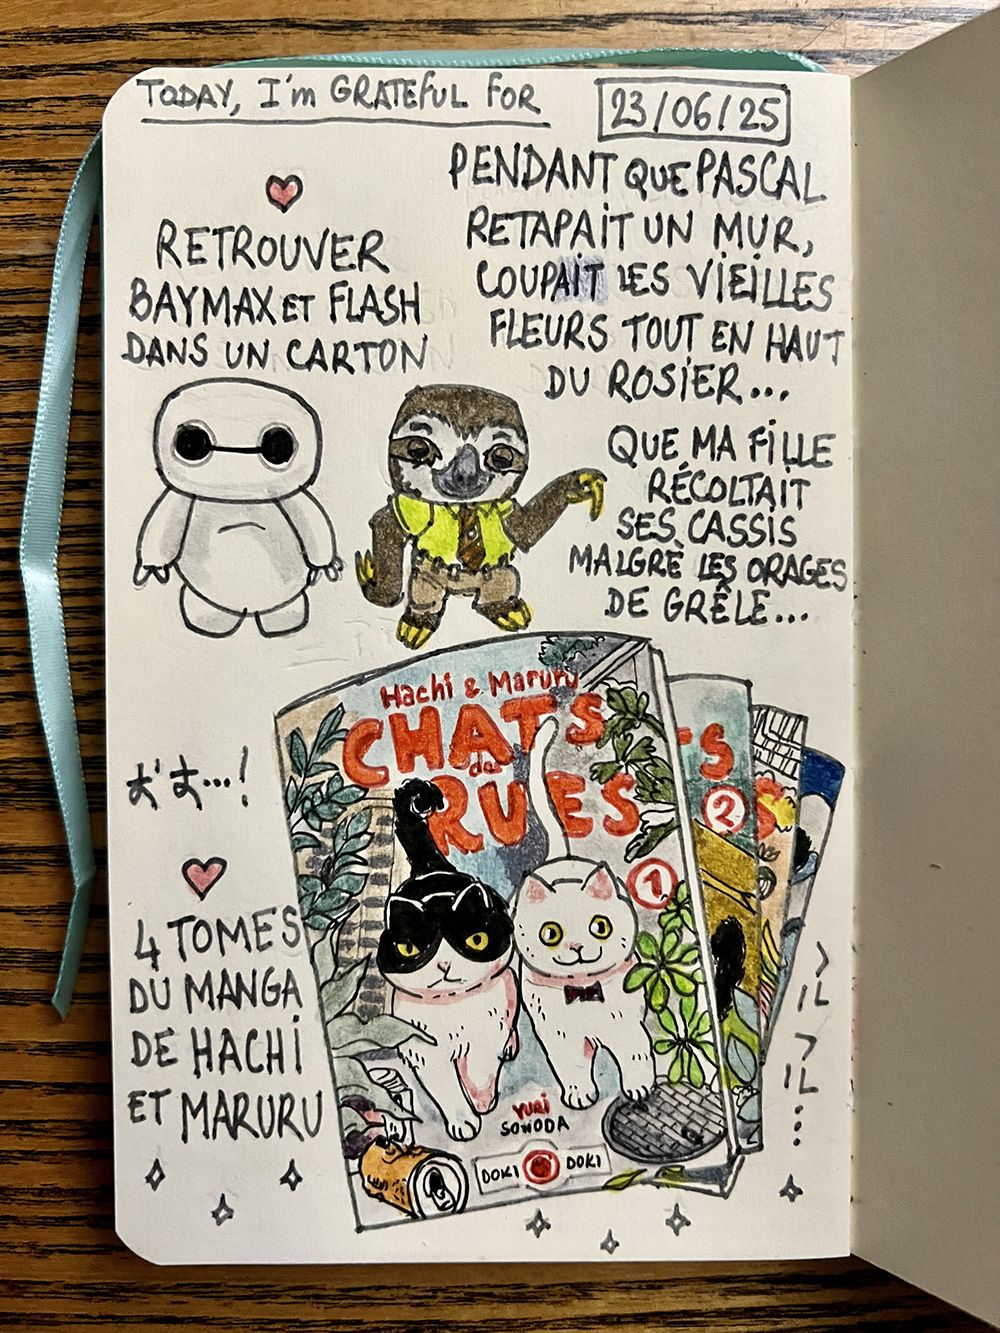 TODAY, I'm GRATEFUL FOR
23/06/25
RETROUVER
BAYMAX ET FLASH
DANS UN CARTON
PENDANT QUE PASCAL
RETAPAIT UN MUR,
COUPAIT LES VIEILLES
FLEURS TOUT EN HAUT
DU ROSIER...
QUE MA FILLE
RÉCOLTAIT
SES CASSIS
MALGRÈ LES ORAGES
DE GRÊLE...
4 TOMES
DU MANGA
DE HACHI
ET MARURU
Hachi & Maruru
CHATS
de
RUES
1
YURI
SONODA
DOKI DOKI
TS
2
S